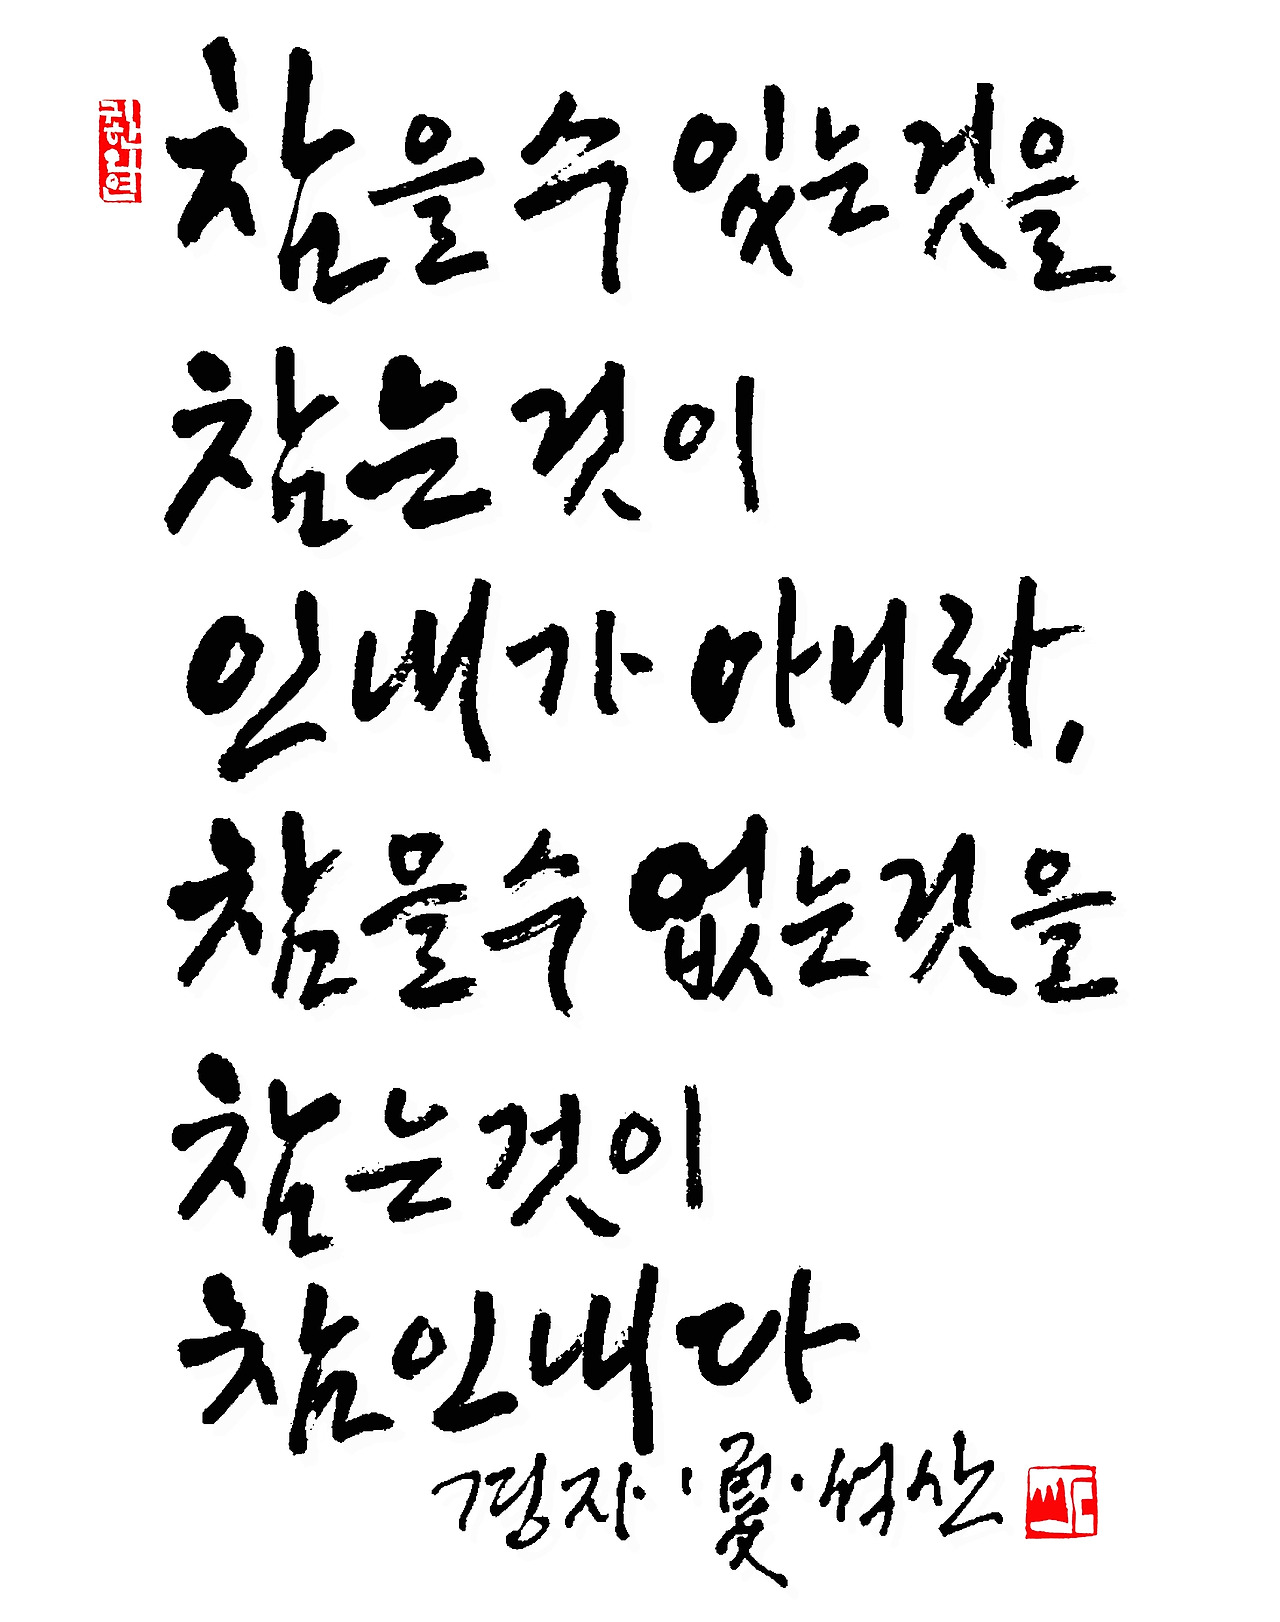 참을수 있는것을
참는것이
인내가 아니라,
참을수 없는것을
참는것이
참인내다
경자·夏·석산